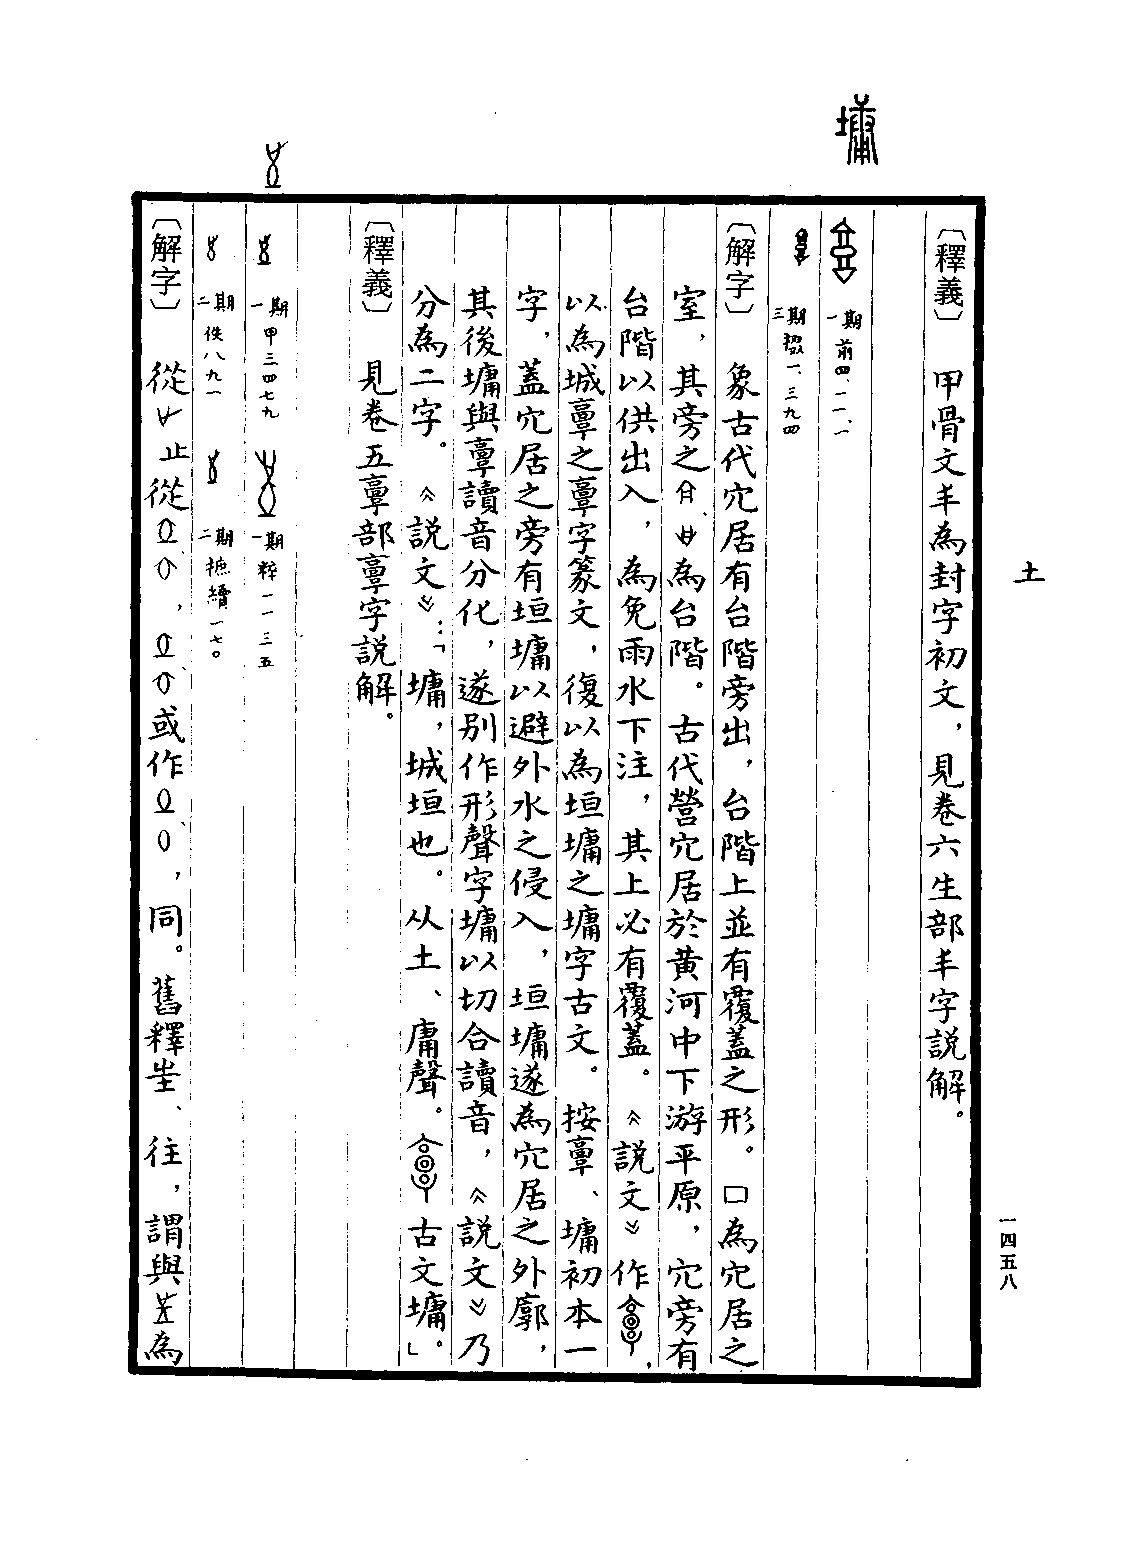 土
一四五八
墉
〔釋義〕 甲骨文丰為封字初文，見卷六生部丰字說解。
一期 前四、一一、一
三期 掇一、三九四
〔解字〕 象古代穴居有台階旁出，台階上並有覆蓋之形。囗為穴居之
室，其旁之、為台階。古代營穴居於黃河中下游平原，穴旁有
台階以供出入，為免雨水下注，其上必有覆蓋。《說文》作，
以為城𩫏之𩫏字篆文，復以為垣墉之墉字古文。按𩫏、墉初本一
字，蓋穴居之旁有垣墉以避外水之侵入，垣墉遂為穴居之外廓，
其後墉與𩫏讀音分化，遂別作形聲字墉以切合讀音，《說文》乃
分為二字。《說文》：「墉，城垣也。从土、庸聲。古文墉。」
〔釋義〕 見卷五𩫏部𩫏字說解。
一期 甲三四七九 一期 粹一一三五
二期 佚八九一 二期 摭續一七〇
〔解字〕 從止從，或作，同。舊釋㞷、往，謂與為